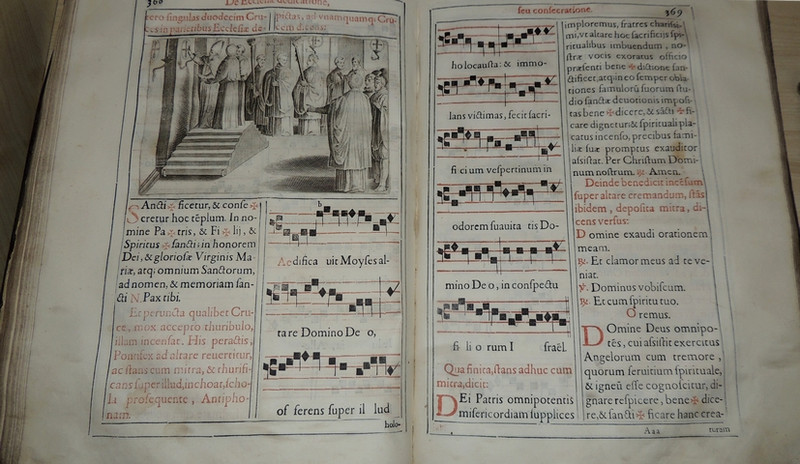 368
De Ecclesiæ dedicatione,
cero singulas duodecim Cru-
ces in parietibus Ecclesiæ de-
pictas, ad vnamquamq; Cru-
cem dicens:
SAncti ✠ ficetur, & conse ✠
cretur hoc tẽplum. In no-
mine Pa ✠ tris, & Fi ✠ lij, &
Spiritus ✠ sancti: in honorem
Dei, & gloriosæ Virginis Ma-
riæ, atq; omnium Sanctorum,
ad nomen, & memoriam san-
cti N. Pax tibi.
Et peruncta qualibet Cru-
ce, mox accepto thuribulo,
illam incensat. His peractis,
Pontifex ad altare reuertitur,
ac stans cum mitra, & thurifi-
cans super illud, inchoat, scho-
la prosequente, Antipho-
nam.
Aedifica uit Moyses al-
tare Domino De o,
of ferens super il lud
holo-
seu consecratione.
369
holocausta: & immo-
lans victimas, fecit sacri-
fi cium vespertinum in
odorem suauita tis Do-
mino De o, in conspectu
fi li o rum I sraël.
Qua finita, stans adhuc cum
mitra, dicit:
DEi Patris omnipotentis
misericordiam supplices
imploremus, fratres charissi-
mi, vt altare hoc sacrificijs spi-
ritualibus imbuendum, no-
stræ vocis exoratus officio
præsenti bene ✠ dictione san-
ctificet, atq; in eo semper obla-
tiones famulorũ suorum stu-
dio sanctæ deuotionis imposi-
tas bene ✠ dicere, & sãcti ✠ fi-
care dignetur: & spirituali pla-
catus incenso, precibus fami-
liæ suæ promptus exauditor
assistat. Per Christum Domi-
num nostrum. ℟. Amen.
Deinde benedicit incẽsum
super altare cremandum, stãs
ibidem, deposita mitra, di-
cens versus:
Domine exaudi orationem
meam.
℟. Et clamor meus ad te ve-
niat.
℣. Dominus vobiscum.
℟. Et cum spiritu tuo.
Oremus.
DOmine Deus omnipo-
tẽs, cui assistit exercitus
Angelorum cum tremore,
quorum seruitium spirituale,
& igneũ esse cognoscitur, di-
gnare respicere, bene ✠ dice-
re, & sancti ✠ ficare hanc crea-
Aaa
turam